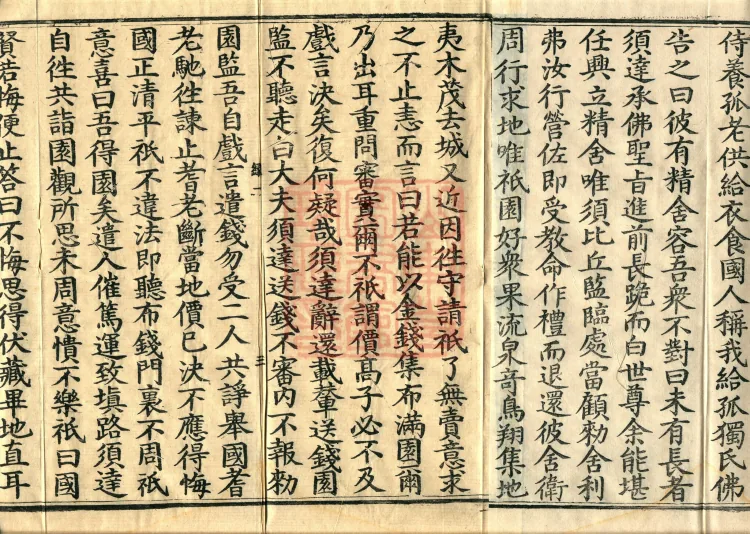 侍養孤老供給衣食國人稱我給孤獨氏佛
告之曰彼有精舍容吾衆不對曰未有長者
須達承佛聖旨進前長跪而白世尊余能堪
任興立精舍唯須比丘監臨處當顧勑舍利
弗汝行營佐即受教命作禮而退還彼舍衛
周行求地唯祇園好衆果流泉奇鳥翔集地
夷木茂去城又近因往守請祇了無賣意求
之不止恚而言曰若能以金錢集布滿園爾
乃出耳重問審實爾不祇謂價髙子必不及
戲言決矣復何疑哉須達辭還載輦送錢園
監不聽走白大夫須達送錢不審內不報勑
園監吾自戲言遣錢勿受二人共諍舉國耆
老馳往諫止耆老斷當地價已決不應得悔
國正清平祇不違法即聽布錢門裏不周祇
意喜曰吾得園矣遣人催篤運致填路須達
自往共詣園觀所思未周意憒不樂祇曰國
賢若悔便止答曰不悔思得伏藏畢地直耳
三